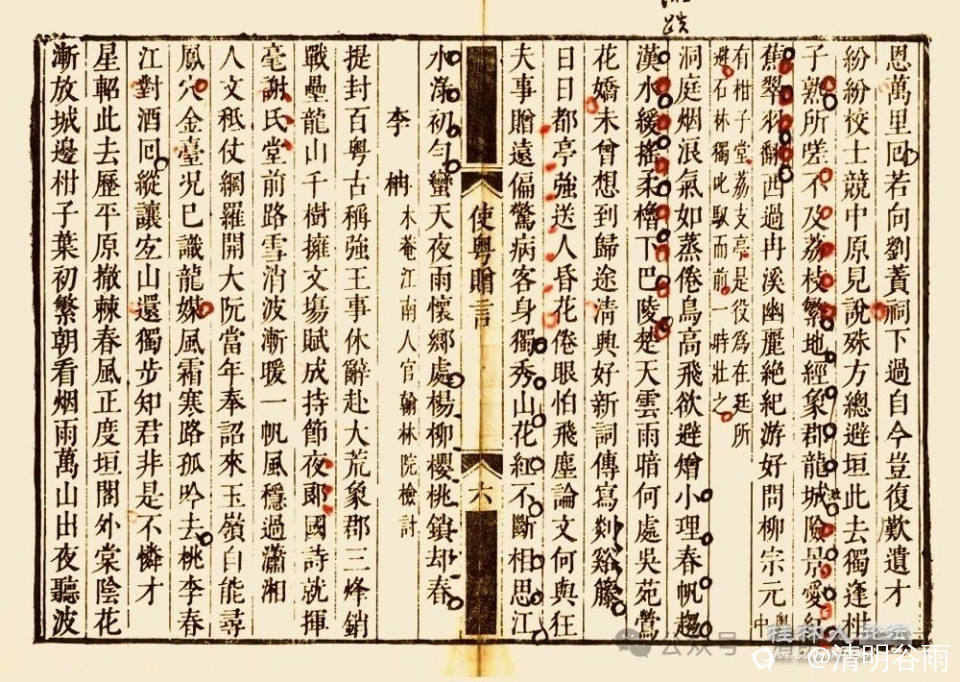 恩萬里回若向劉蕡祠下過自今豈復歎遺才
紛紛校士競中原見說殊方總避垣此去獨逢柑
子熟所嗟不及荔枝繁地經象郡龍城險景愛紅
蕉翠羽翻西過冉溪幽麗絶紀游好問柳宗元粵中
有柑子堂荔支亭是役為在廷所
避石林獨叱馭而前一時壯之
洞庭烟浪氣如蒸倦鳥高飛欲避熷小理春帆趨
漢水緩搖柔櫓下巴陵楚天雲雨暗何處吳苑鶯
花嬌未曾想到歸途淸興好新詞傳寫剡谿籐
日日都亭強送人昏花倦眼怕飛塵論文何與狂
夫事贈遠偏驚病客身獨秀山花紅不斷相思江
水淥初勻蠻天夜雨懷鄉處楊柳櫻桃鎖却春
使粵贈言
六
李柟木菴江南人官翰林院檢討
提封百粵古稱強王事休辭赴大荒象郡三烽銷
戰壘龍山千樹擁文場賦成持節夜郎國詩就揮
毫謝氏堂前路雪消波漸暖一帆風穩過瀟湘
人文秪仗網羅開大阮當年奉詔來玉嶺自能尋
鳳穴金臺况已識龍媒風霜寒路孤吟去桃李春
江對酒回縱讓左山還獨步知君非是不憐才
星軺此去歷平原撤棘春風正度垣閣外棠陰花
漸放城邊柑子葉初繁朝看烟雨萬山出夜聽波
公众号
桂林人论坛
@清明谷雨